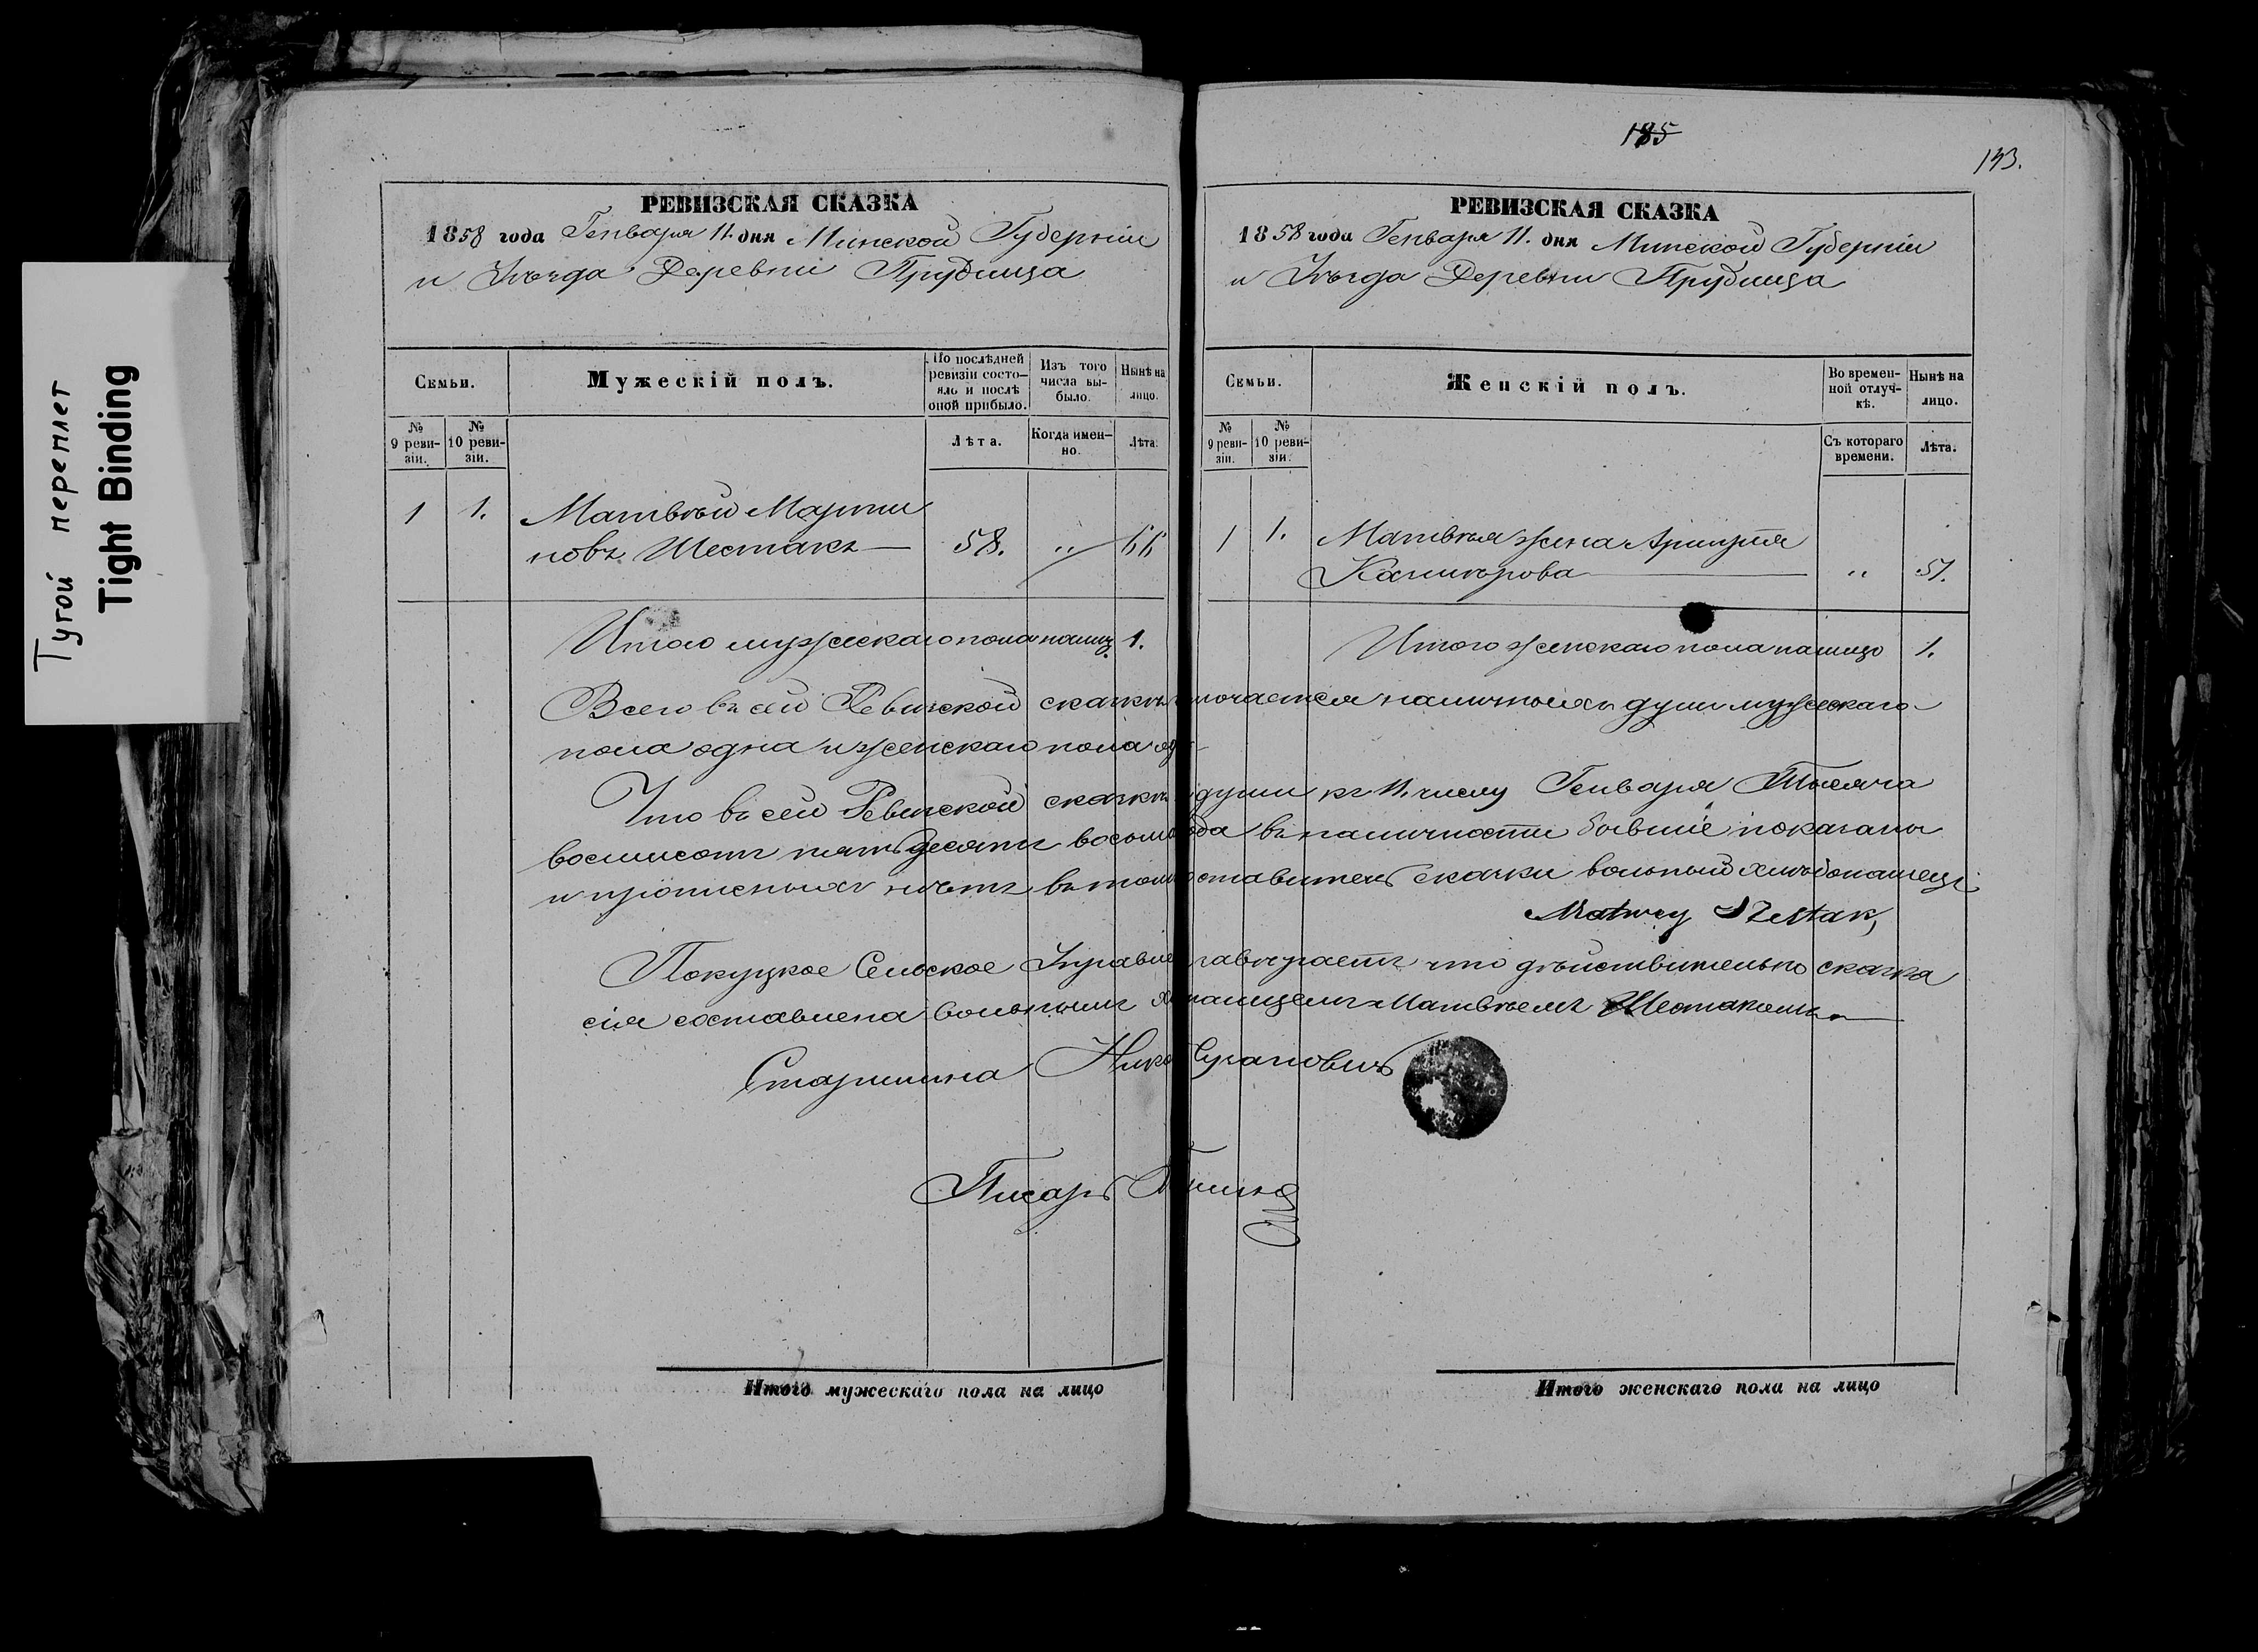 Тугой переплет
Tight Binding
РЕВИЗСКАЯ СКАЗКА
1858 года Генваря 11. дня Минской Губерніи
и Уѣзда Деревни Прудища
Семьи.
Мужескій полъ.
По послѣдней ревизіи состояло и послѣ оной прибыло.
Изъ того числа выбыло.
Нынѣ на лицо.
№ 9 ревизіи.
№ 10 ревизіи.
Лѣта.
Когда именно.
Лѣта.
1 1. Матвѣй Марти
новъ Шестакъ 58. „ 66
Итого мужескаго пола налиц. 1.
185
193.
РЕВИЗСКАЯ СКАЗКА
1858 года Генваря 11. дня Минской Губерніи
и Уѣзда Деревни Прудища
Семьи.
Женскій полъ.
Во временной отлучкѣ.
Нынѣ на лицо.
№ 9 ревизіи.
№ 10 ревизіи.
Съ котораго времени.
Лѣта.
1 1. Матвѣя жена
„ 51.
Итого женскаго пола налицо 1.
Всего въ сей Ревизской сказкѣ наличныхъ душъ мужескаго
пола одна и женскаго пола
Что въ сей Ревизской сказкѣ души къ 11. числу Генваря Тысяча
восмисотъ пятьдесятъ восьмаго года въ наличности бывшіе показаны
и прописныхъ нѣтъ въ томъ составитель сказки вольный хлѣбопашецъ
Matwey Szestak
Покуцкое Сельское завѣряетъ что дѣйствительно сказка
сія составлена вольнымъ Матвѣемъ Шестакомъ
Старшина
Писарь
Итого мужескаго пола на лицо
Итого женскаго пола на лицо